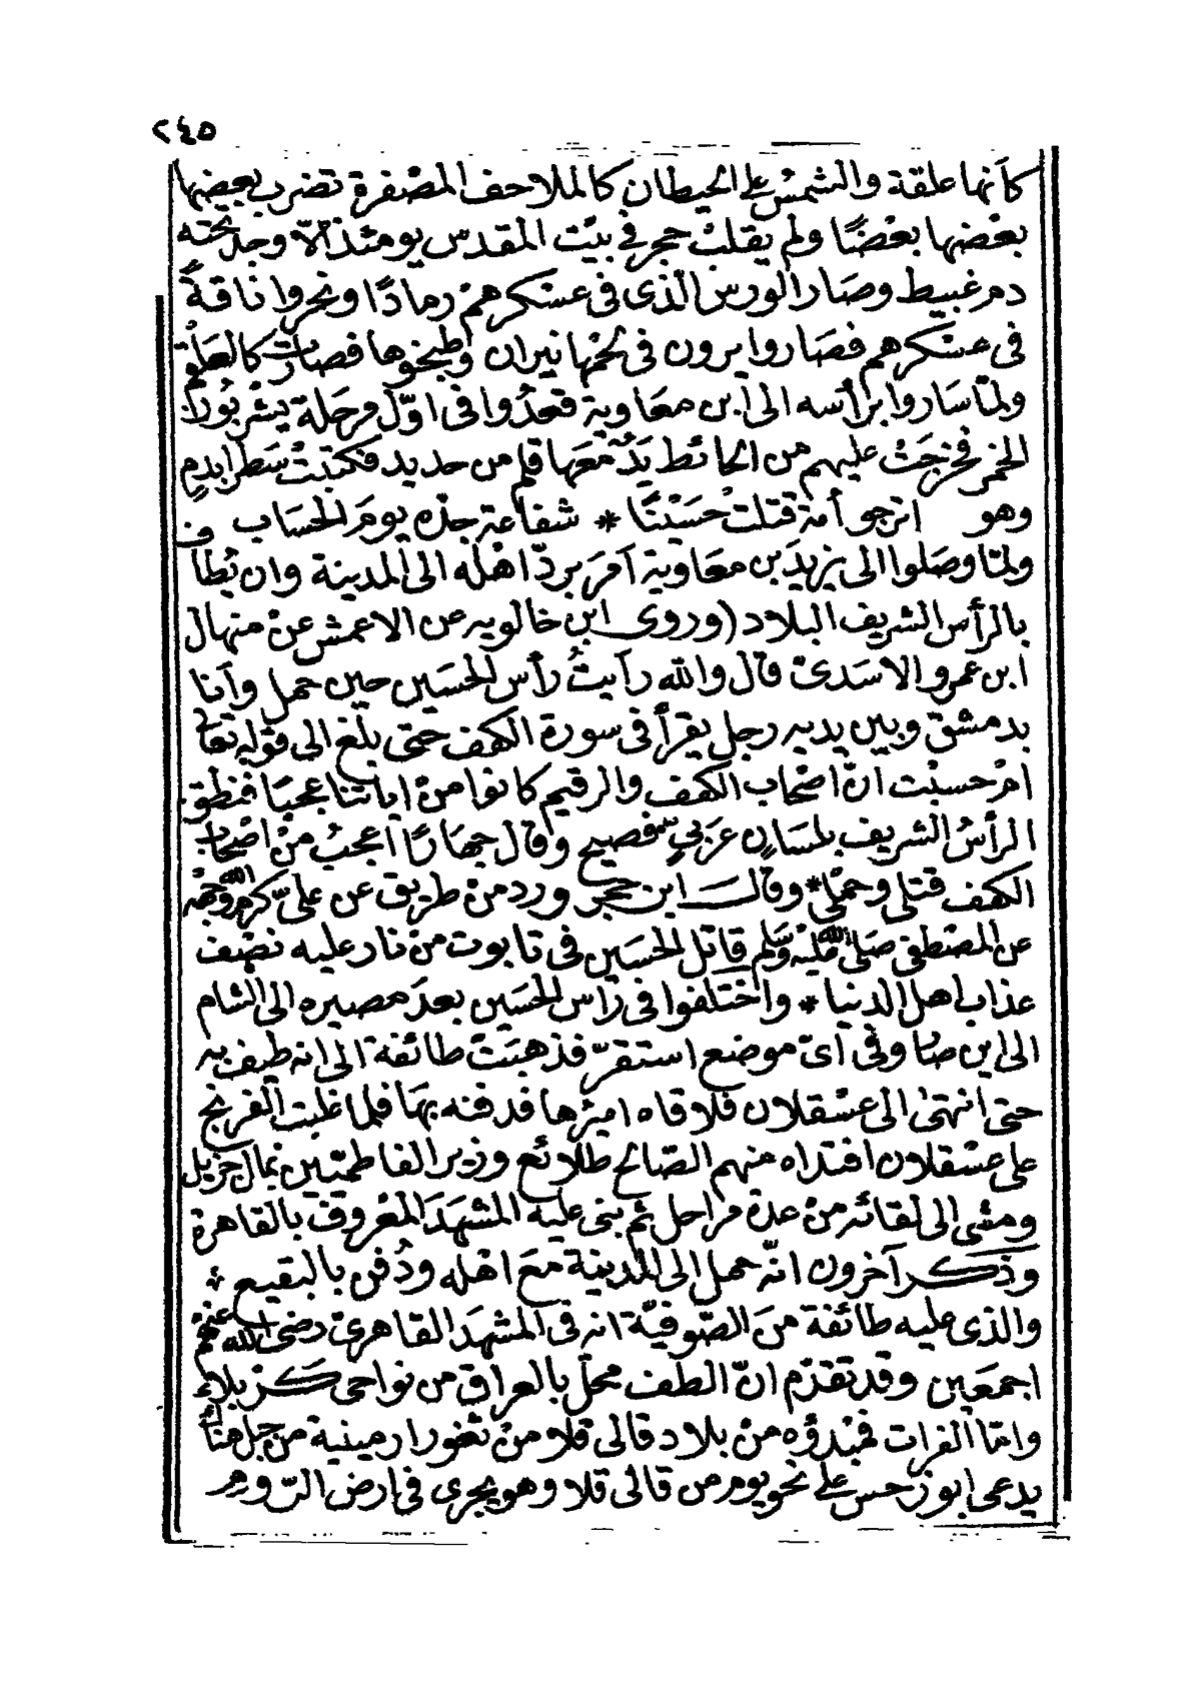 ٢٤٥
كأنها علقة والشمس على الحيطان كالملاحف المصفرة تضرب بعضها
بعضها بعضًا ولم يقلب حجر في بيت المقدس يومئذ الّا وجد تحته
دم غبيط وصار الورس الّذى فى عسكرهمْ رمادًا ونحروا ناقةً
فى عسكرهم فصَاروا يرون فى لحمها نيران وطبخوها فصارت كالعلقم
ولمّا سَاروا برأسه الى ابن معَاوية قعدُوا فى اوّل مرحلة يشربُون
الخمر فخرجَتْ عليهم من الحائط يَدٌ معَها قلم من حديد فكتبَتْ سَطرا بدمٍ
وهو اترجو أمة قتلتْ حسَيْنًا * شفاعة جدّه يومَ الحسَاب
ولمّا وصَلوا الى يزيدَ بن معَاوية أمَر بردّ اهْله الى المدينة وان يُطَا ف
بالرأس الشريف البلاد (وروى ابن خالويه عن الاعمش عنْ منهال
ابن عمرو الاسَدىّ قال والله رأيتُ رأس الحسَين حين حمل وأنا
بدمشق وبين يديه رجل يقرأ فى سورة الكهف حتى بلغ الى قوله تعالى
امْ حسبْت انّ اصْحاب الكهف والرقيم كانوا منْ اياتنا عجبًا فنطق
الرأسُ الشريف بلسَانٍ عَربىٍّ فصيح وقال جهَارًا أعجبُ منْ اصْحاب
الكهف قتلى وحملى * وقال ابن حجر ورد منْ طريق عن علىّ كرم الله وجهه
عن المصْطفى صَلى الله عليْه وسَلم قاتل الحسَين فى تابوت منْ نار عليه نصْف
عذاب اهل الدنيا * واختلفوا فى رأس الحسَين بعدَ مصيره الى الشام
الى اين صار وفى أىّ موضع استقرّ فذهبَتْ طائفة الى انه طيف به
حتى انتهى الى عسْقلان فلاقاه اميرها فدفنه بهَا فلما غلبت الفرنج
على عسْقلان افتداه منهم الصّالح طلائع وزير الفاطميّين بمال جزيل
ومشى الى لقائه منْ عدة مراحل ثم بنى عليه المشهَدَ المعْروف بالقاهرة
وذكر آخرون انّه حمل الى المدينة معَ اهْله ودُفن بالبقيع *
والذى عليه طائفة منَ الصّوفيّة انه فى المشهَد القاهرىّ رضى الله عنهم
اجمعَين وقد تقدّم انّ الطف محلّ بالعراق من نواحى كربلاء
وامّا الفرات فمبْدؤه منْ بلاد قالى قلا منْ ثغور ارمينية من جبل هناك
يدعى ابوز حسْ على نحو يوم من قالى قلا وهو يجرى فى ارض الرّوم